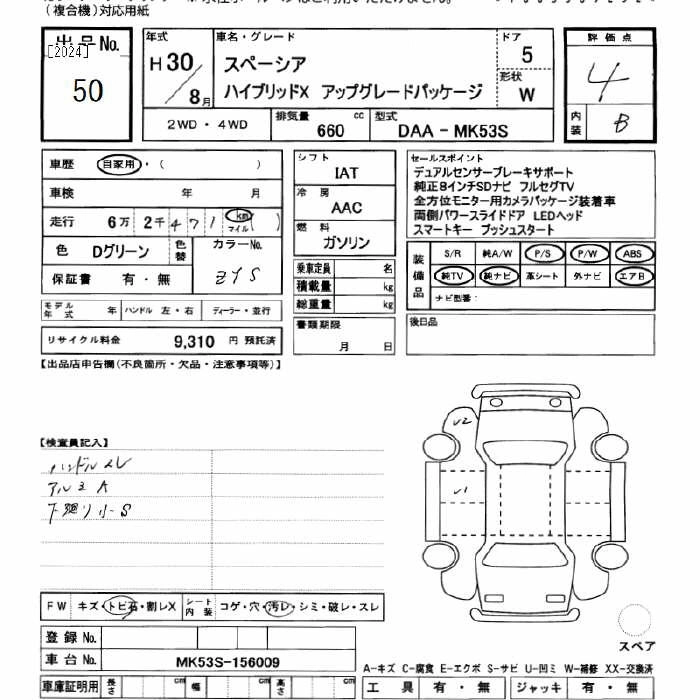 (複合機)対応用紙
出品No.
[2024]
50
年式
H30/8月
車名・グレード
スペーシア
ハイブリッドX アップグレードパッケージ
ドア
5
形状
W
2WD・4WD
排気量
660 cc
型式
DAA－MK53S
評価点
4
内装
B
車歴 自家用・( )
車検 年 月
走行 6万 2千471 km マイル ( )
色 Dグリーン 色替 カラーNo.
ZYS
保証書 有・無
モデル年式 年 ハンドル 左・右 ディーラー・並行
リサイクル料金 9,310 円 預託済
シフト
IAT
冷房
AAC
燃料
ガソリン
乗車定員 名
積載量 kg
総重量 kg
書類期限
月 日
セールスポイント
デュアルセンサーブレーキサポート
純正8インチSDナビ フルセグTV
全方位モニター用カメラパッケージ装着車
両側パワースライドドア LEDヘッド
スマートキー プッシュスタート
装備品
S/R 純A/W P/S P/W ABS
純TV 純ナビ 革シート 外ナビ エアB
ナビ型番:
後日品
【出品店申告欄(不良箇所・欠品・注意事項等)】
【検査員記入】
ハンドルスレ
アルミA
下廻り小S
U2
U1
FW キズ・トビ石・割レX シート内装 コゲ・穴・汚レ・シミ・破レ・スレ
登録No.
車台No. MK53S-156009
車庫証明用 長さ cm 幅 cm 高さ cm
スペア
A-キズ C-腐食 E-エクボ S-サビ U-凹ミ W-補修 XX-交換済
工具 有・無 ジャッキ 有・無